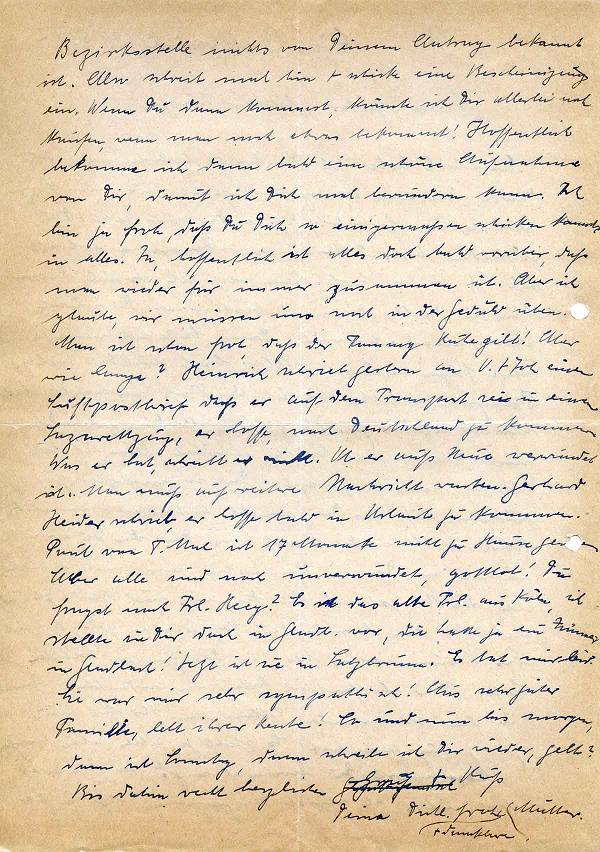 Bezirksstelle nichts von Deinem Antrag bekannt
ist. Also schreib mal hin + schicke eine Bescheinigung
ein. Wenn Du dann kommst, könnte ich Dir allerlei mal
kaufen, wenn man noch etwas bekommt! Hoffentlich
bekomme ich dann bald eine schöne Aufnahme
von Dir, damit ich Dich mal bewundern kann. Ich
bin ja froh, daß Du Dich so einigermaßen schicken kannst
in alles. Ja, hoffentlich ist alles doch bald vorüber, daß
man wieder für immer zusammen ist. Aber ich
glaube, wir müssen uns noch in der Geduld üben.
Man ist schon froh, daß der Tommy Ruhe gibt! Aber
wie lange? Heinrich schrieb gestern an V. + Joh. einen
Luftpostbrief daß er auf dem Transport sei in einem
Lazarettzug, er hoffe, nach Deutschland zu kommen.
Was er hat, schreibt er nicht. Ob er aufs Neue verwundet
ist. Man muß auf weitere Nachricht warten. Gerhard
Heider schrieb, er hoffe bald in Urlaub zu kommen.
Paul von T. Mal ist 17 Monate nicht zu Hause gewesen.
Aber alle sind noch unverwundet, gottlob! Du
fragst nach Frl. Heeg? Es ist das alte Frl. aus Köln, ich
stellte sie Dir doch in Gladb. vor, die hatte ja ein Zimmer
in Gladbach! Jetzt ist sie in Salzbrunn. Es tat mir leid.
Sie war mir sehr sympathisch! Aus sehr guter
Familie, lebt ihrer Rente! So und nun bis morgen,
dann ist Sonntag, dann schreibe ich Dir wieder, gelt?
Bis dahin recht herzlichen Gruß + Kuß
Deine Dich frohe Mutter.
+ dankbare